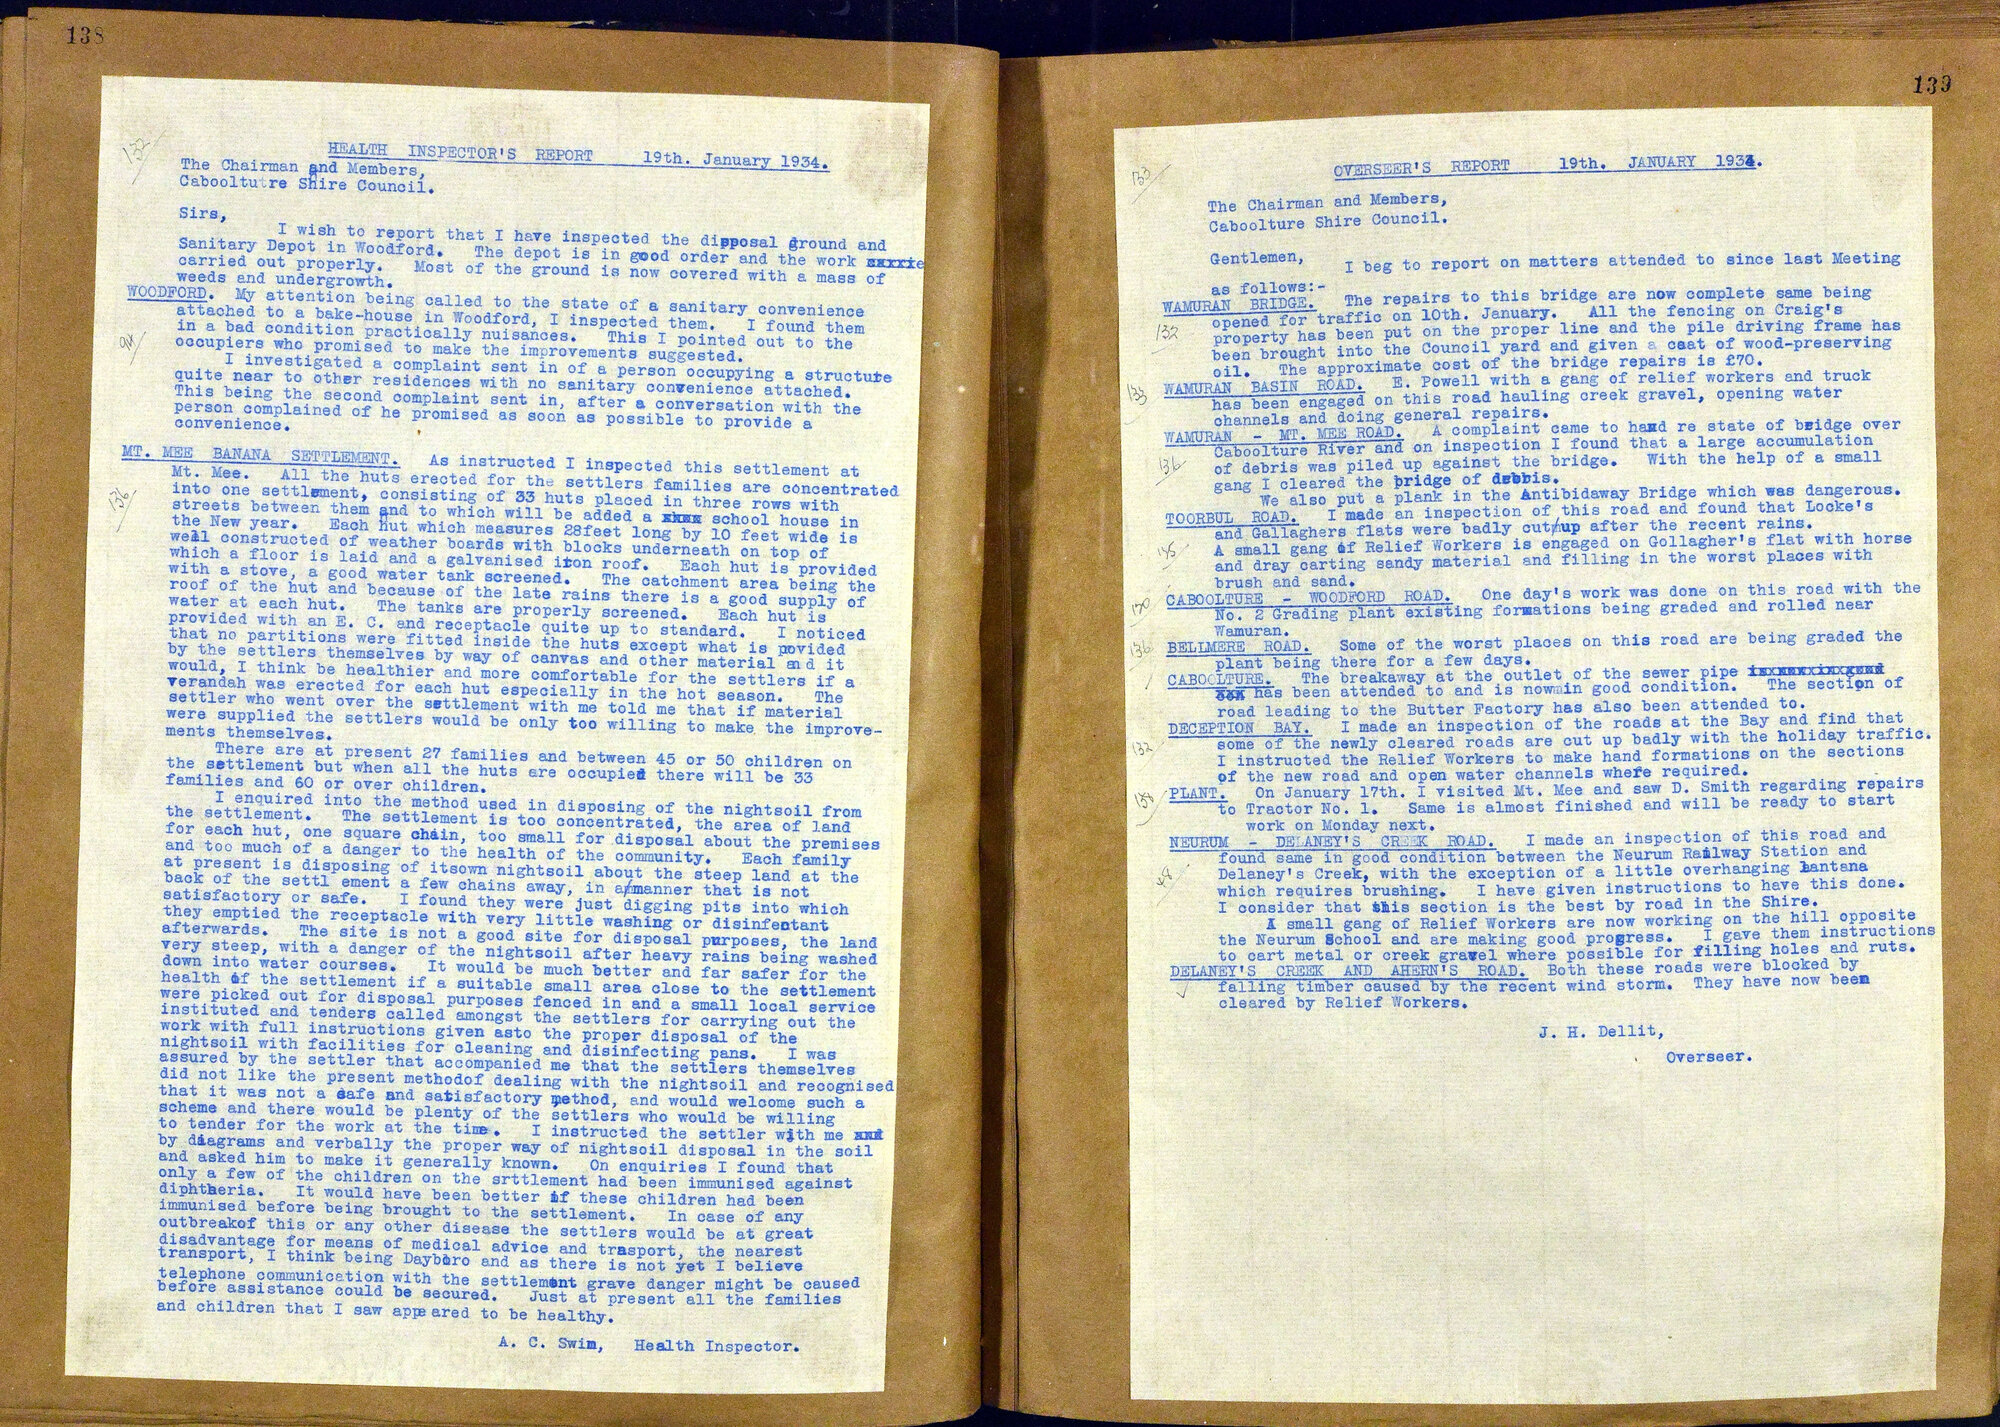 138
132
HEALTH INSPECTOR'S REPORT 19th. January 1934.
The Chairman and Members,
Cabooltutre Shire Council.
Sirs,
I wish to report that I have inspected the disposal ground and
Sanitary Depot in Woodford. The depot is in good order and the work
carried out properly. Most of the ground is now covered with a mass of
weeds and undergrowth.
WOODFORD. My attention being called to the state of a sanitary convenience
attached to a bake-house in Woodford, I inspected them. I found them
in a bad condition practically nuisances. This I pointed out to the
occupiers who promised to make the improvements suggested.
I investigated a complaint sent in of a person occupying a structute
quite near to other residences with no sanitary convenience attached.
This being the second complaint sent in, after a conversation with the
person complained of he promised as soon as possible to provide a
convenience.
MT. MEE BANANA SETTLEMENT. As instructed I inspected this settlement at
Mt. Mee. All the huts erected for the settlers families are concentrated
136
into one settlement, consisting of 33 huts placed in three rows with
streets between them and to which will be added a school house in
the New year. Each hut which measures 28feet long by 10 feet wide is
well constructed of weather boards with blocks underneath on top of
which a floor is laid and a galvanised iron roof. Each hut is provided
with a stove, a good water tank screened. The catchment area being the
roof of the hut and because of the late rains there is a good supply of
water at each hut. The tanks are properly screened. Each hut is
provided with an E. C. and receptacle quite up to standard. I noticed
that no partitions were fitted inside the huts except what is povided
by the settlers themselves by way of canvas and other material and it
would, I think be healthier and more comfortable for the settlers if a
verandah was erected for each hut especially in the hot season. The
settler who went over the settlement with me told me that if material
were supplied the settlers would be only too willing to make the improve-
ments themselves.
There are at present 27 families and between 45 or 50 children on
the settlement but when all the huts are occupied there will be 33
families and 60 or over children.
I enquired into the method used in disposing of the nightsoil from
the settlement. The settlement is too concentrated, the area of land
for each hut, one square chain, too small for disposal about the premises
and too much of a danger to the health of the community. Each family
at present is disposing of itsown nightsoil about the steep land at the
back of the settl ement a few chains away, in a/manner that is not
satisfactory or safe. I found they were just digging pits into which
they emptied the receptacle with very little washing or disinfentant
afterwards. The site is not a good site for disposal purposes, the land
very steep, with a danger of the nightsoil after heavy rains being washed
down into water courses. It would be much better and far safer for the
health of the settlement if a suitable small area close to the settlement
were picked out for disposal purposes fenced in and a small local service
instituted and tenders called amongst the settlers for carrying out the
work with full instructions given asto the proper disposal of the
nightsoil with facilities for cleaning and disinfecting pans. I was
assured by the settler that accompanied me that the settlers themselves
did not like the present methodof dealing with the nightsoil and recognised
that it was not a safe and satisfactory method, and would welcome such a
scheme and there would be plenty of the settlers who would be willing
to tender for the work at the time. I instructed the settler with me
by diagrams and verbally the proper way of nightsoil disposal in the soil
and asked him to make it generally known. On enquiries I found that
only a few of the children on the srttlement had been immunised against
diphtheria. It would have been better if these children had been
immunised before being brought to the settlement. In case of any
outbreakof this or any other disease the settlers would be at great
disadvantage for means of medical advice and trasport, the nearest
transport, I think being Dayboro and as there is not yet I believe
telephone communication with the settlement grave danger might be caused
before assistance could be secured. Just at present all the families
and children that I saw appeared to be healthy.
A. C. Swim, Health Inspector.
139
133
OVERSEER'S REPORT 19th. JANUARY 1934.
The Chairman and Members,
Caboolture Shire Council.
Gentlemen,
I beg to report on matters attended to since last Meeting
as follows:-
WAMURAN BRIDGE. The repairs to this bridge are now complete same being
132
opened for traffic on 10th. January. All the fencing on Craig's
property has been put on the proper line and the pile driving frame has
been brought into the Council yard and given a coat of wood-preserving
oil. The approximate cost of the bridge repairs is £70.
133
WAMURAN BASIN ROAD. E. Powell with a gang of relief workers and truck
has been engaged on this road hauling creek gravel, opening water
channels and doing general repairs.
WAMURAN - MT. MEE ROAD. A complaint came to hand re state of bridge over
136
Caboolture River and on inspection I found that a large accumulation
of debris was piled up against the bridge. With the help of a small
gang I cleared the bridge of debris.
We also put a plank in the Antibidaway Bridge which was dangerous.
TOORBUL ROAD. I made an inspection of this road and found that Locke's
and Gallaghers flats were badly cut/up after the recent rains.
A small gang of Relief Workers is engaged on Gollagher's flat with horse
and dray carting sandy material and filling in the worst places with
brush and sand.
CABOOLTURE - WOODFORD ROAD. One day's work was done on this road with the
No. 2 Grading plant existing formations being graded and rolled near
Wamuran.
136
BELLMERE ROAD. Some of the worst places on this road are being graded the
plant being there for a few days.
CABOOLTURE. The breakaway at the outlet of the sewer pipe
has been attended to and is nowmin good condition. The section of
road leading to the Butter Factory has also been attended to.
DECEPTION BAY. I made an inspection of the roads at the Bay and find that
132
some of the newly cleared roads are cut up badly with the holiday traffic.
I instructed the Relief Workers to make hand formations on the sections
of the new road and open water channels where required.
138
PLANT. On January 17th. I visited Mt. Mee and saw D. Smith regarding repairs
to Tractor No. 1. Same is almost finished and will be ready to start
work on Monday next.
NEURUM - DELANEY'S CREEK ROAD. I made an inspection of this road and
found same in good condition between the Neurum Railway Station and
48
Delaney's Creek, with the exception of a little overhanging lantana
which requires brushing. I have given instructions to have this done.
I consider that this section is the best by road in the Shire.
A small gang of Relief Workers are now working on the hill opposite
the Neurum School and are making good progress. I gave them instructions
to cart metal or creek gravel where possible for filling holes and ruts.
DELANEY'S CREEK AND AHERN'S ROAD. Both these roads were blocked by
falling timber caused by the recent wind storm. They have now been
cleared by Relief Workers.
J. H. Dellit,
Overseer.